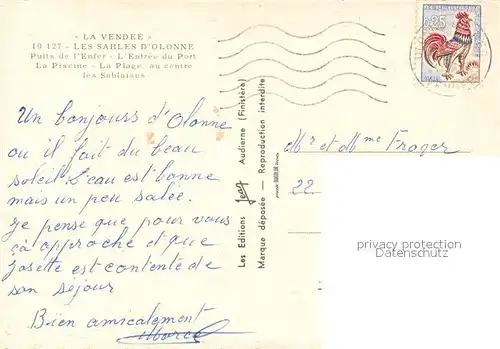 « LA VENDEE »
10 127 - LES SABLES D'OLONNE
Puits de l'Enfer - L'Entrée du Port
La Piscine - La Plage, au centre
les Sablaises
0,25
Un bonjours d'Olonne
ou il fait du beau
soleil L'eau est bonne
mais un peu salée.
Je pense que pour vous
ça approche et que
Josette est contente de
son séjour
Bien amicalement
Marcel
Les Editions Jean Audierne (Finistère)
Marque déposée — Reproduction interdite
Mr et Mme Froger
22
privacy protection
AKPOOL.DE